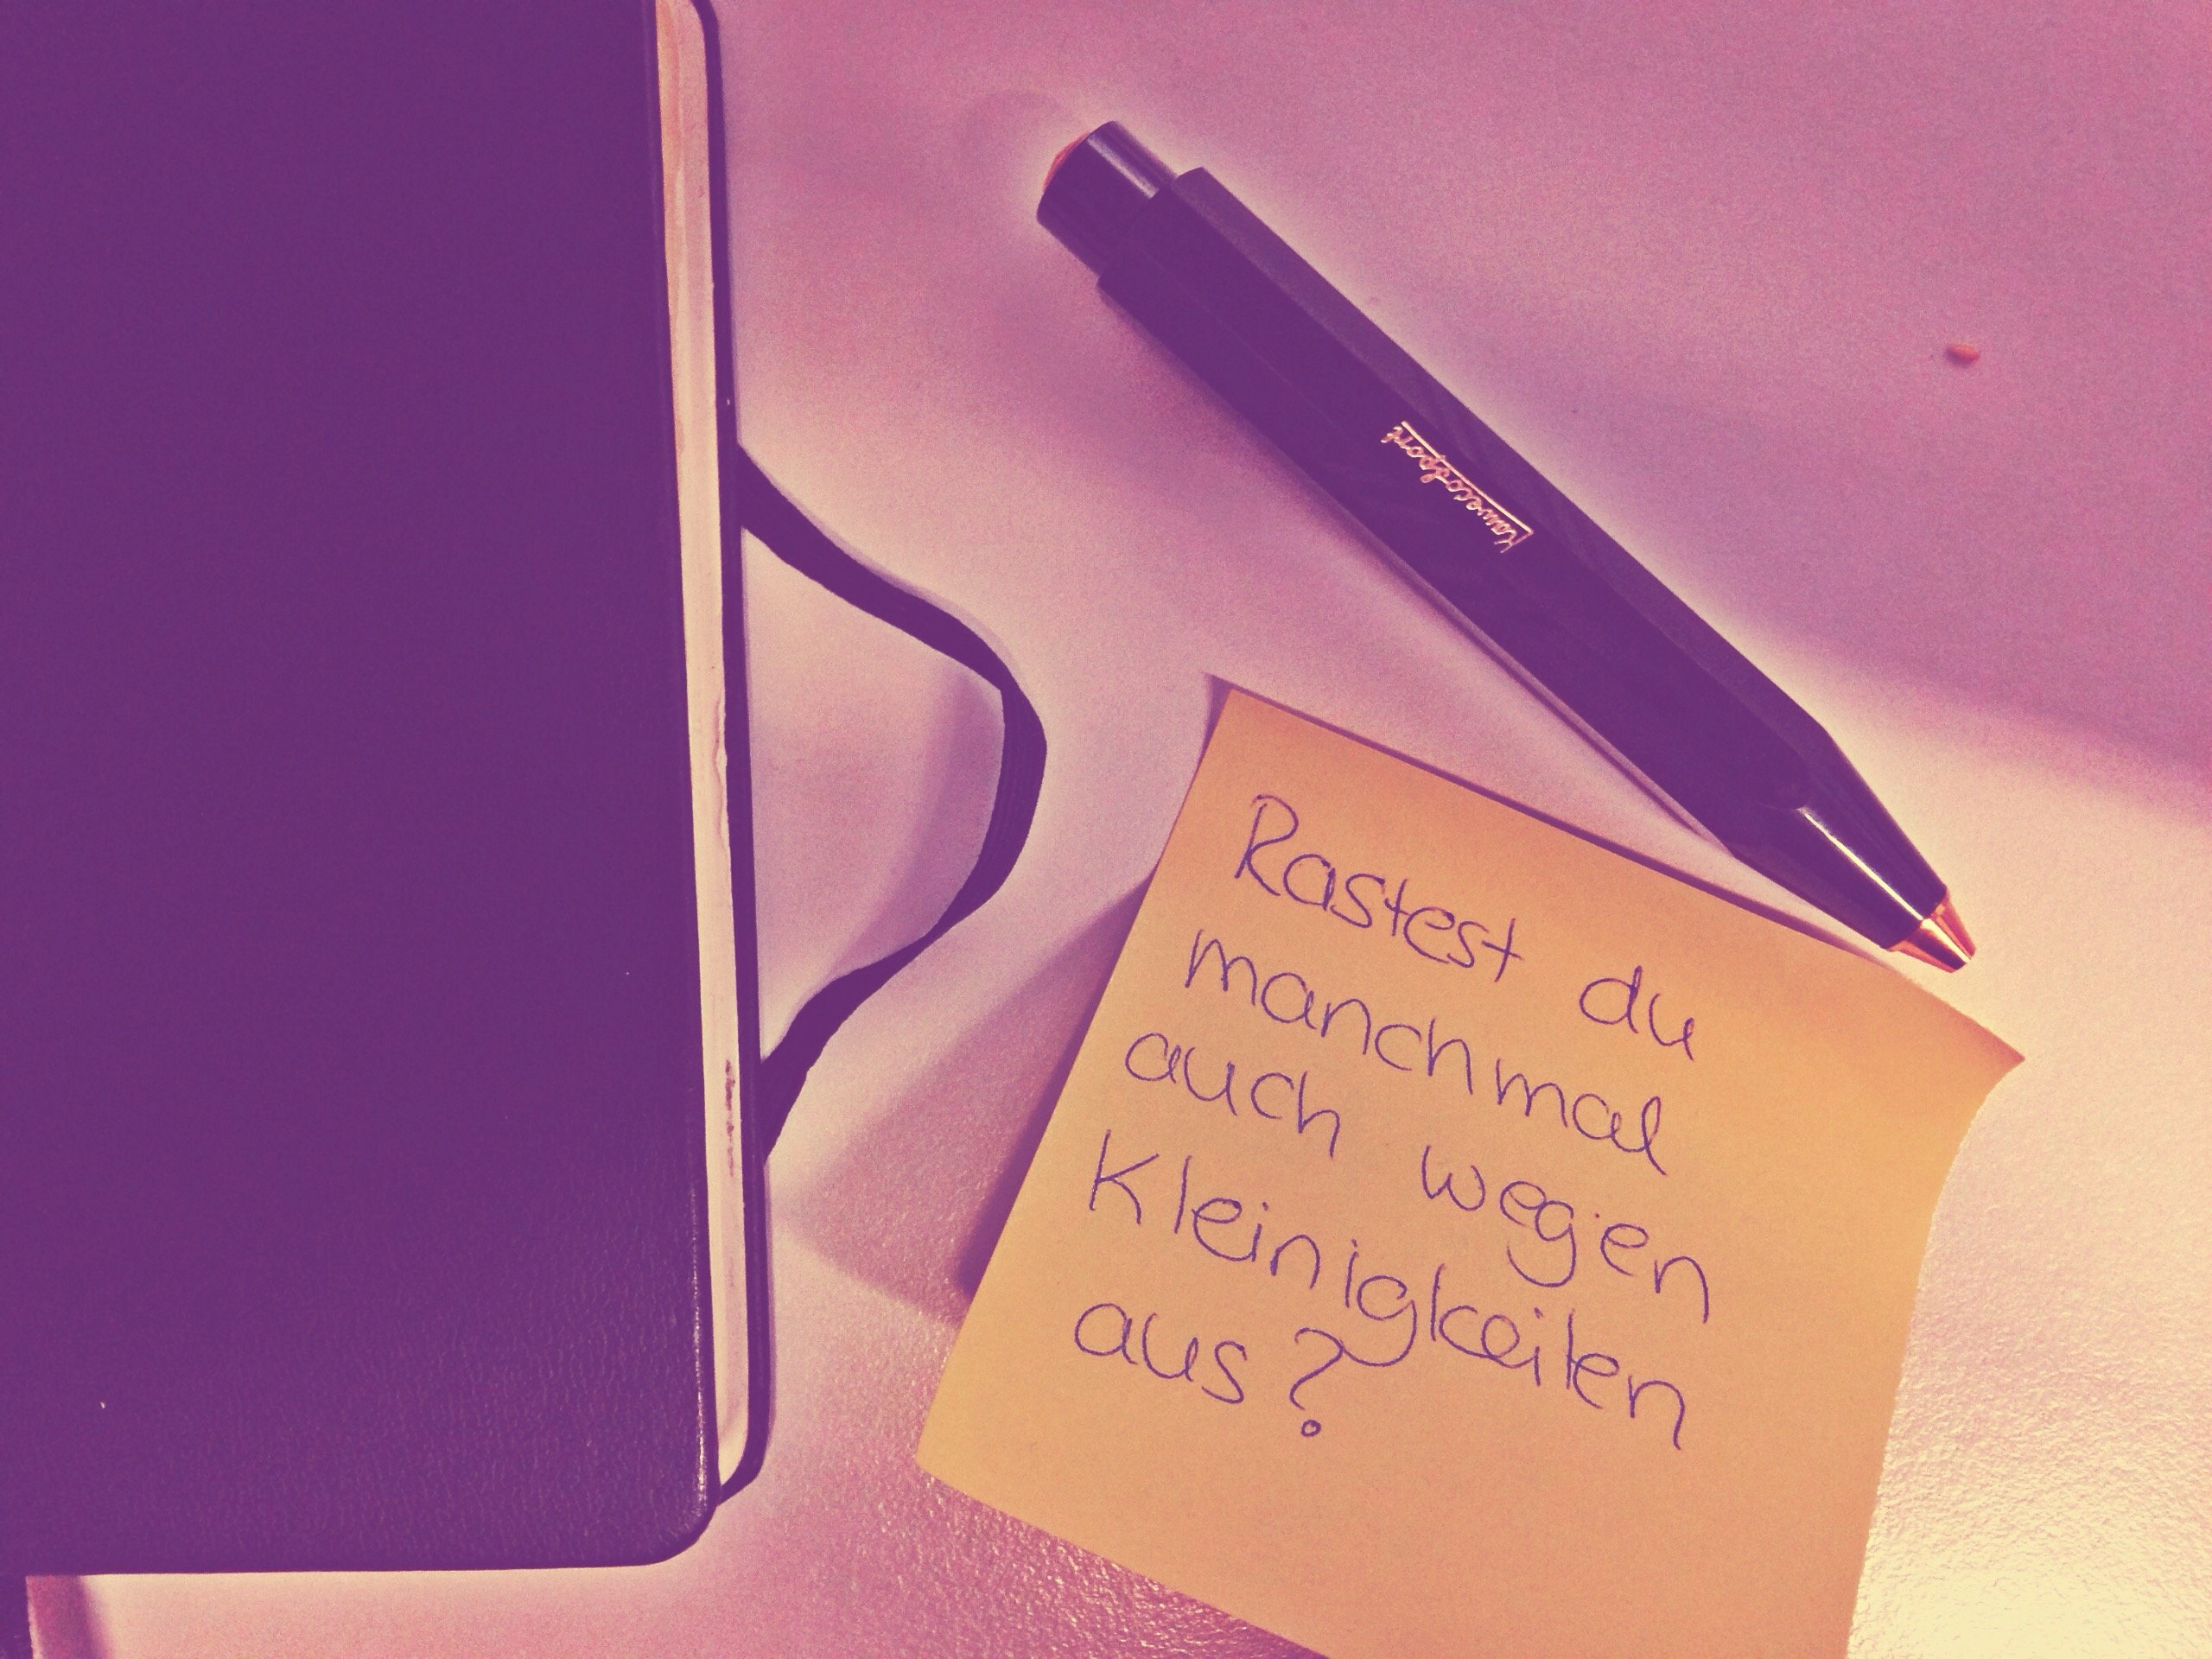 Kaweco Sport
Rastest du
manchmal
auch wegen
Kleinigkeiten
aus?